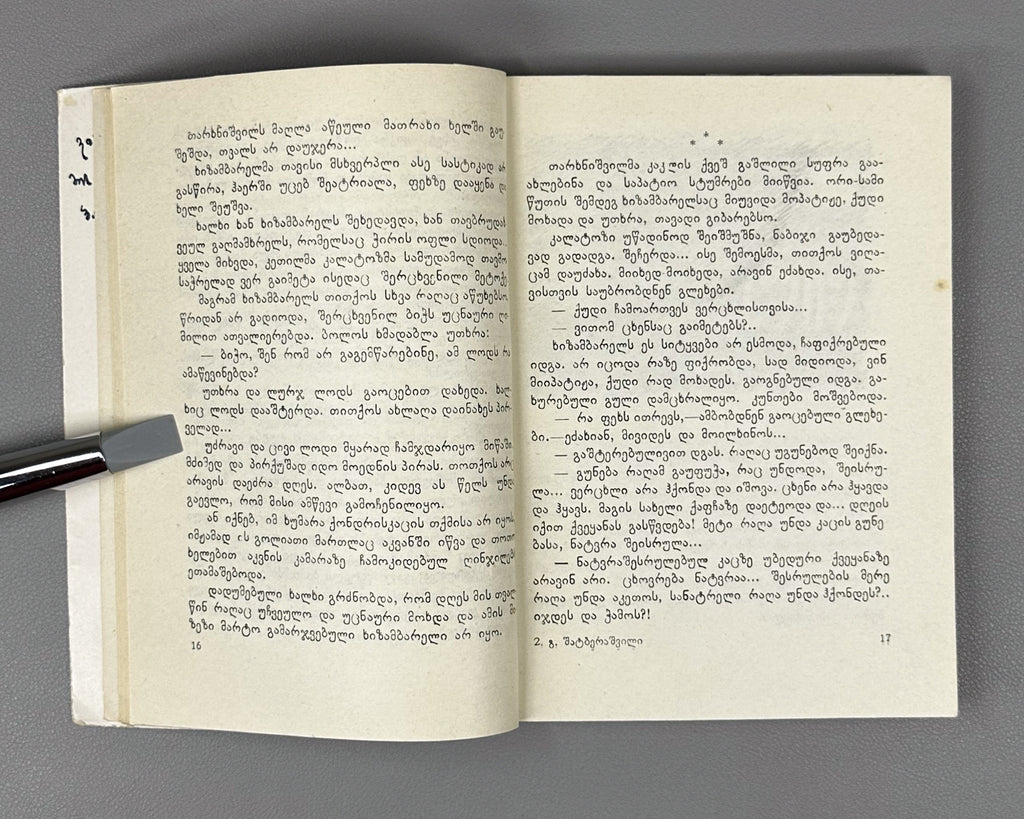 თარხნიშვილს მაღლა აწეული მათრახი ხელში გაუ-
შეშდა, თვალს არ დაუჯერა...
ხიზამბარელმა თავისი მსხვერპლი ასე სასტიკად არ
გასწირა, ჰაერში უცებ შეატრიალა, ფეხზე დააყენა და
ხელი შეუშვა.
ხალხი ხან ხიზამბარელს შეხედავდა, ხან თავბრუდახ-
ვეულ გაღმამხრელს, რომელსაც ჭირის ოფლი სდიოდა..
ყველა მიხვდა, კეთილმა კალატოზმა სამუდამოდ
საჭრელად ვერ გაიმეტა ისედაც შერცხვენილი მეტოქე
მაგრამ ხიზამბარელს თითქოს სხვა რაღაც აწუხებსო,
წრიდან არ გადიოდა, შერცხვენილ ბიჭს უცნაური ღი-
მილით ათვალიერებდა. ბოლოს ხმადაბლა უთხრა:
— ბიჭო, შენ რომ არ გაგემწარებინე, ამ ლოდს რა
ამაწევინებდა?
უთხრა და ლურჯ ლოდს გაოცებით დახედა. ხალ-
ხიც ლოდს დააშტერდა. თითქოს ახლაღა დაინახეს პირ-
ველად...
უძრავი და ცივი ლოდი მყარად ჩამჯდარიყო მიწაში.
მძიმედ და პირქუშად იდო მოედნის პირას. თოთქოს არც
არავის დაეძრა დღეს. ალბათ, კიდევ ას წელს უნდა
გაევლო, რომ მისი ამწევი გამოჩენილიყო.
ან იქნებ, იმ ხუმარა ქონდრისკაცის თქმისა არ იყოს,
იმჟამად ის გოლიათი მართლაც აკვანში იწვა და თოთო
ხელებით აკვნის კამარაზე ჩამოკიდებულ ღინჯილებს
ეთამაშებოდა.
დადუმებული ხალხი გრძნობდა, რომ დღეს მის თვალ-
წინ რაღაც უჩვეულო და უცნაური მოხდა და ამის მი-
ზეზი მარტო გამარჯვებული ხიზამბარელი არ იყო.
16
* * *
თარხნიშვილმა კაკლის ქვეშ გაშლილი სუფრა გაა-
ახლებინა და საპატიო სტუმრები მიიწვია. ორი-სამი
წუთის შემდეგ ხიზამბარელსაც მიუვიდა მოპატიჟე, ქუდი
მოხადა და უთხრა, თავადი გიბარებსო.
კალატოზი უწადინოდ შეიშმუშნა, ნაბიჯი გაუბედა-
ვად გადადგა. შეჩერდა... ისე შემოესმა, თითქოს ვიღა-
ცამ დაუძახა. მიიხედ-მოიხედა, არავინ ეძახდა. ისე, თა-
ვისთვის საუბრობდნენ გლეხები.
— ქუდი ჩამოართვეს ვერცხლისთვისა...
— ვითომ ცხენსაც გაიმეტებს?..
ხიზამბარელს ეს სიტყვები არ ესმოდა, ჩაფიქრებული
იდგა. არ იცოდა რაზე ფიქრობდა, სად მიდიოდა, ვინ
მიიპატიჟა, ქუდი რად მოხადეს. გაოგნებული იდგა. გა-
ხურებული გული დამცხრალიყო. კუნთები მოშვებოდა.
— რა ფეხს ითრევს,—ამბობდნენ გაოცებული გლეხე-
ბი.—ეძახიან, მივიდეს და მოილხინოს...
— გაშტერებულივით დგას. რაღაც უგუნებოდ შეიქნა.
— გუნება რაღამ გაუფუჭა, რაც უნდოდა, შეისრუ-
ლა... ვერცხლი არა ჰქონდა და იშოვა. ცხენი არა ჰყავდა
და ჰყავს. მაგის სახელი ქაფჩაზე დაეტეოდა და... დღეის
იქით ქვეყანას გასწვდება! მეტი რაღა უნდა კაცის გუნე
ბასა, ნატვრა შეისრულა...
— ნატვრაშესრულებულ კაცზე უბედური ქვეყანაზე
არავინ არი. ცხოვრება ნატვრაა... შესრულების მერე
რაღა უნდა აკეთოს, სანატრელი რაღა უნდა ჰქონდეს?..
იჯდეს და ჭამოს?!
2. გ. შატბერაშვილი
17